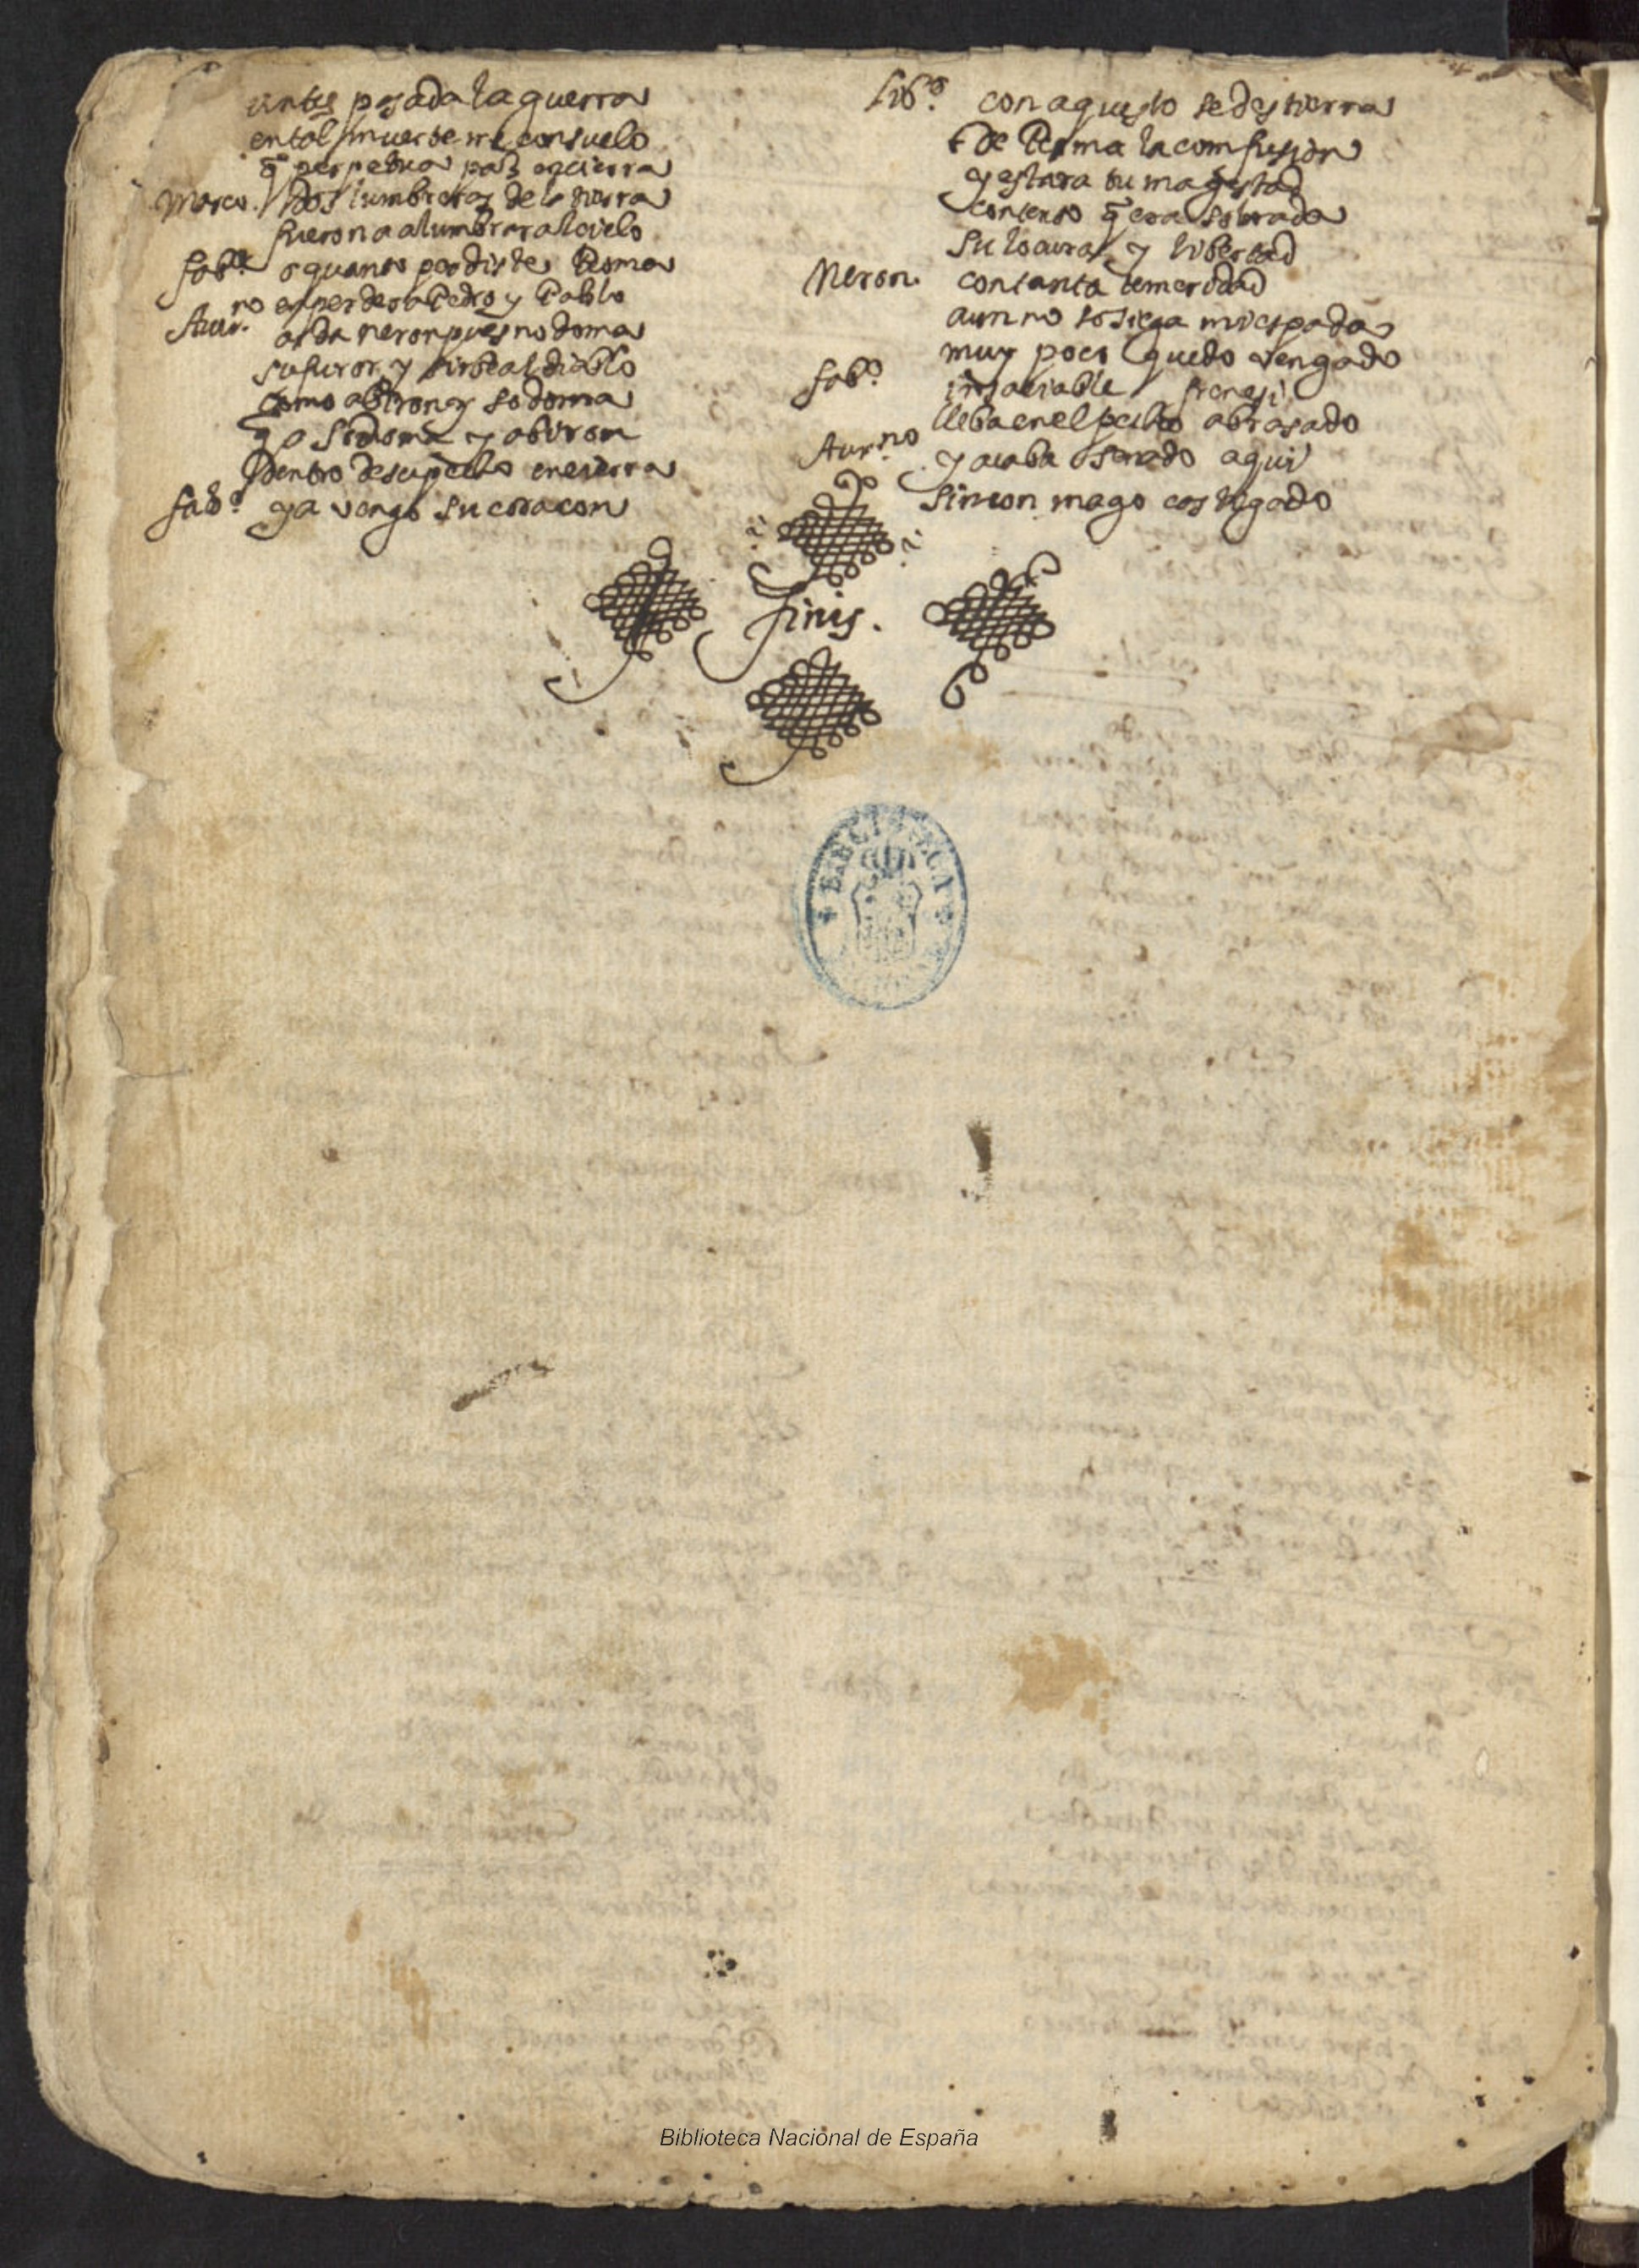 antes pasada la guerra
en tal muerte me consuelo
q̄ perpetua paz encierra
Marco. Dos lumbreras de la tierra
fueron a alumbrar al cielo
fab.º o quanto perdiste Roma
en perder a Pedro y Pablo
Aur.no arda neron pues no doma
su furor y sirbe al diablo
como abiron y sodoma
q̄ a sodoma y abiron
dentro de su pecho encierra
fab.º ya vengo su coracon
Lib.º con aquesto se destierra
de Roma la comfusion
y estara tu magestad
contento q̄ era sobrada
su locura y libertad
Neron. con tanta temeridad
aun no sosiega mi espada
muy poco quedo vengado
fab.º insaciable frenesi
lleba en el pecho abrasado
Aur.no y acaba senado aqui
simon mago castigado
finis.
BIBLIOTECA
Biblioteca Nacional de España